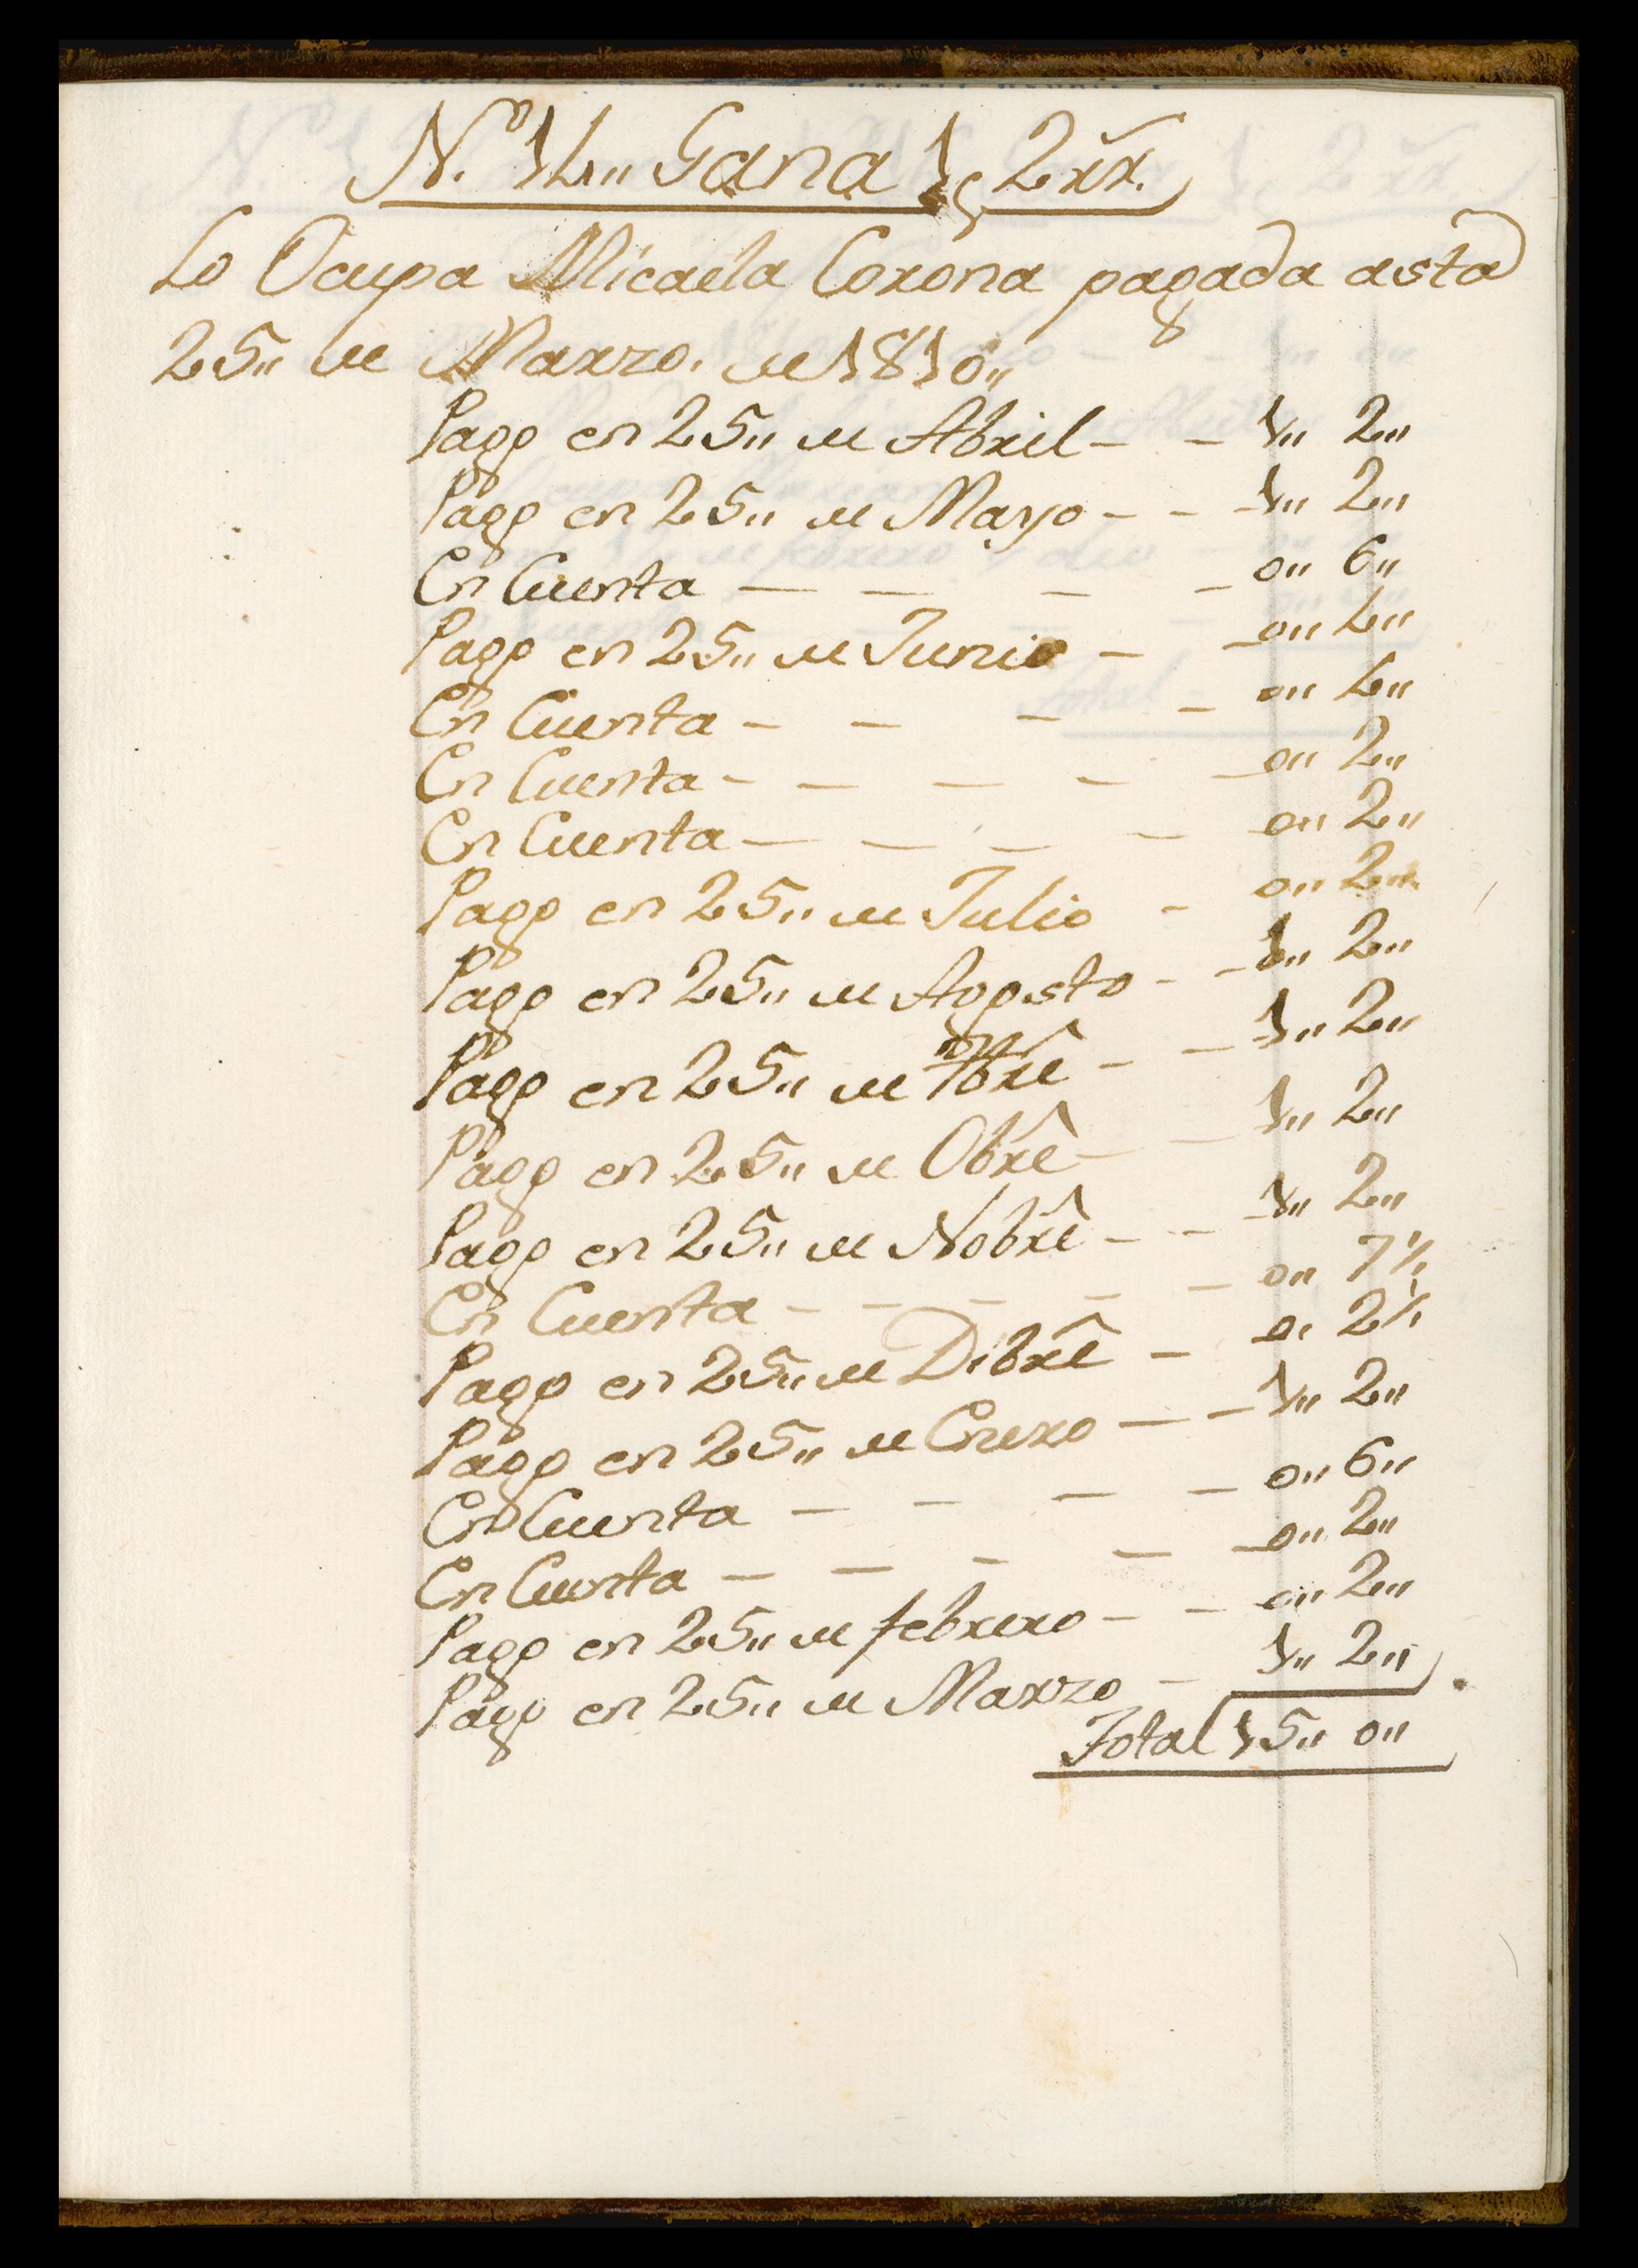 N.º 14,, Gana 1ps 2rr.
Lo Ocupa Micaela Corona pagada asta
25,, de Marzo. de 1810,,
Pago en 25,, de Abril - - 1,, 2,,
Pago en 25,, de Mayo - - - 1,, 2,,
En Cuenta - - - - 0,, 6,,
Pago en 25,, de Junio - - 0,, 4,,
En Cuenta - - - - 0,, 4,,
En Cuenta - - - - - 0,, 2,,
En Cuenta - - - - 0,, 2,,
Pago en 25,, de Julio - 0,, 2,,
Pago en 25,, de Agosto - - 1,, 2,,
Pago en 25,, de 7brê - - 1,, 2,,
Pago en 25,, de Obrê - - 1,, 2,,
Pago en 25,, de Nobrê - - - 1,, 2,,
En Cuenta - - - - - 0,, 7½
Pago en 25,, de Dibrê - 0,, 2½
Pago en 25,, de Enero - - 1,, 2,,
En Cuenta - - - - 0,, 6,,
En Cuenta - - - - - 0,, 2,,
Pago en 25,, de febrero - - 0,, 2,,
Pago en 25,, de Marzo - 1,, 2,,
Total 15,, 0,,